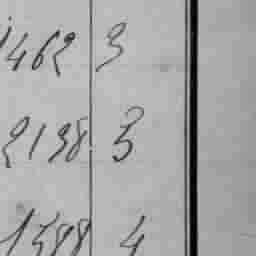 1462 3
2138 3
1588 4